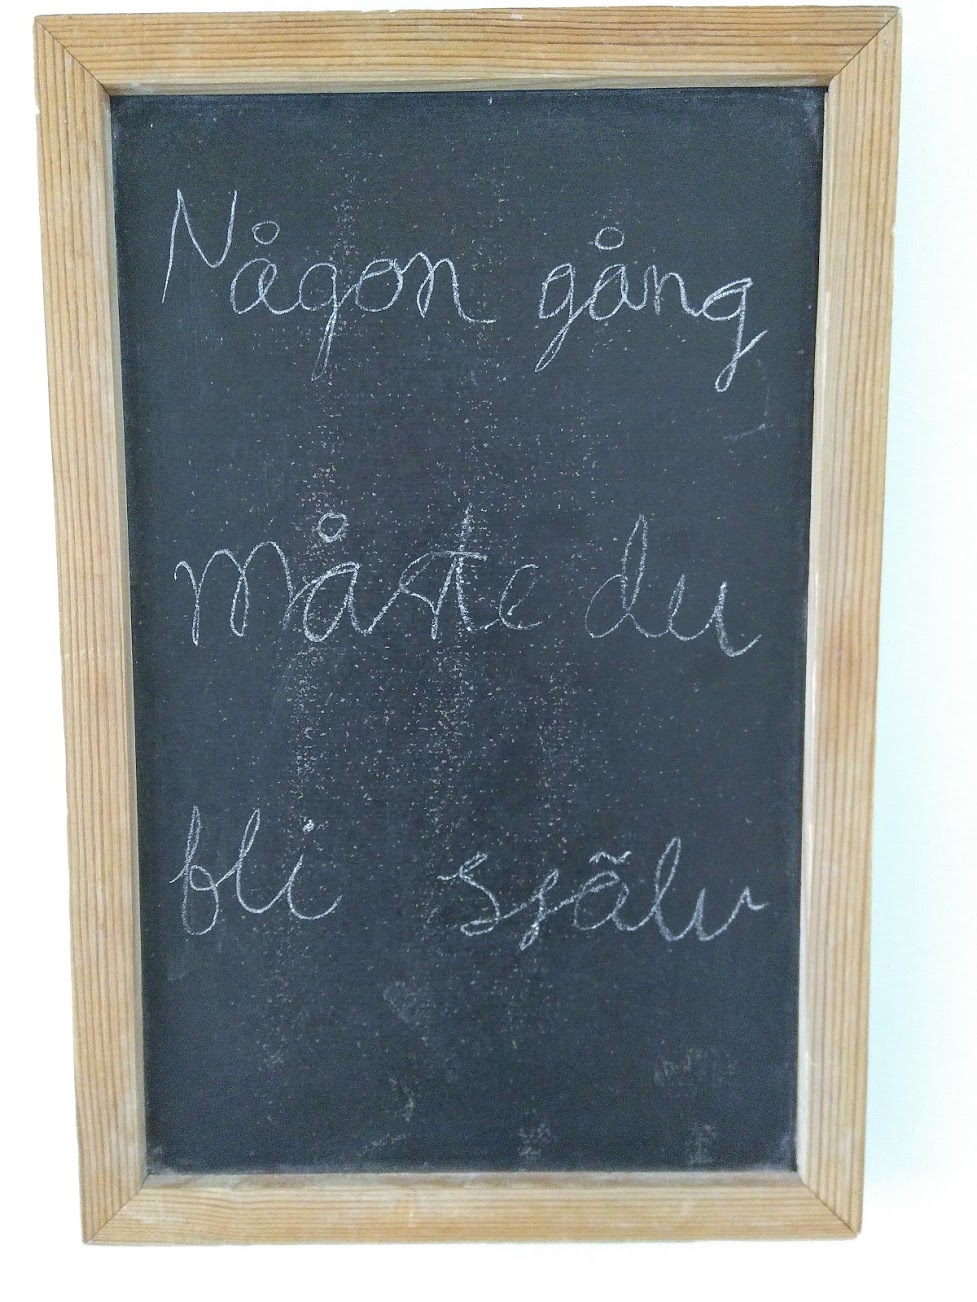 Någon gång
måste du
bli själv